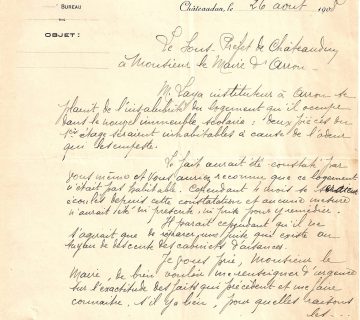 BUREAU
OBJET:
Châteaudun, le 26 août 190
Le Sous Préfet de Châteaudun
à Monsieur le Maire d'Arrou
M. Laya instituteur à Arrou se
plaint de l'insalubrité du logement qu'il occupe
dans le nouvel immeuble scolaire : Deux pièces du
1er étage seraient inhabitables à cause de l'odeur
qui les empeste.
Le fait aurait été constaté par
vous même et vous auriez reconnu que ce logement
n'était pas habitable. Cependant 4 mois se seraient
écoulés depuis cette constatation et aucune mesure
n'aurait été ni prescrite, ni prise pour y remédier.
Il paraît cependant qu'il ne
s'agirait que de réparer une fuite qui existe au
tuyau de descente des cabinets d'aisances.
Je vous prie, Monsieur le
Maire, de bien vouloir me renseigner d'urgence
sur l'exactitude des faits qui précèdent et me faire
connaître, s'il y a lieu, pour quelles raisons
les